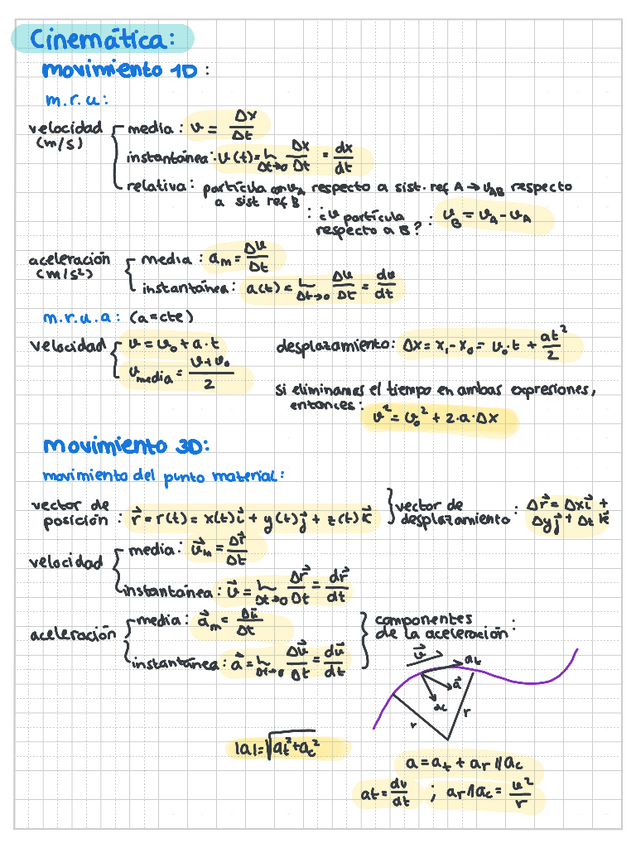 Cinemática:
movimiento 1D:
m.r.u:
velocidad (m/s)
media: v = Δx/Δt
instantánea: v(t) = lim Δt→0 Δx/Δt = dx/dt
relativa: partícula con v_A respecto a sist. ref A → v_AB respecto
a sist ref B
: ¿v partícula
respecto a B? : v_B = v_A - v_A
aceleración (m/s²)
media: a_m = Δv/Δt
instantánea: a(t) = lim Δt→0 Δv/Δt = dv/dt
m.r.u.a: (a=cte)
velocidad
v = v₀ + a·t
v_media = v+v₀/2
desplazamiento: Δx = x₁-x₀ = v₀·t + at²/2
si eliminamos el tiempo en ambas expresiones,
entonces:
v² = v₀² + 2·a·Δx
movimiento 3D:
movimiento del punto material:
vector de
posición : r⃗ = r(t) = x(t)i⃗ + y(t)j⃗ + z(t)k⃗
vector de
desplazamiento : Δr⃗ = Δxi⃗ +
Δyj⃗ + Δt k⃗
velocidad
media: v⃗m = Δr⃗/Δt
instantánea: v⃗ = lim Δt→0 Δr⃗/Δt = dr⃗/dt
aceleración
media: a⃗m = Δv⃗/Δt
instantánea: a⃗ = lim Δt→0 Δv⃗/Δt = dv⃗/dt
componentes
de la aceleración:
v⃗
at
a⃗
ac
r
r
|a| = √at²+ac²
a = at + ar//ac
at = dv/dt ; ar//ac = v²/r